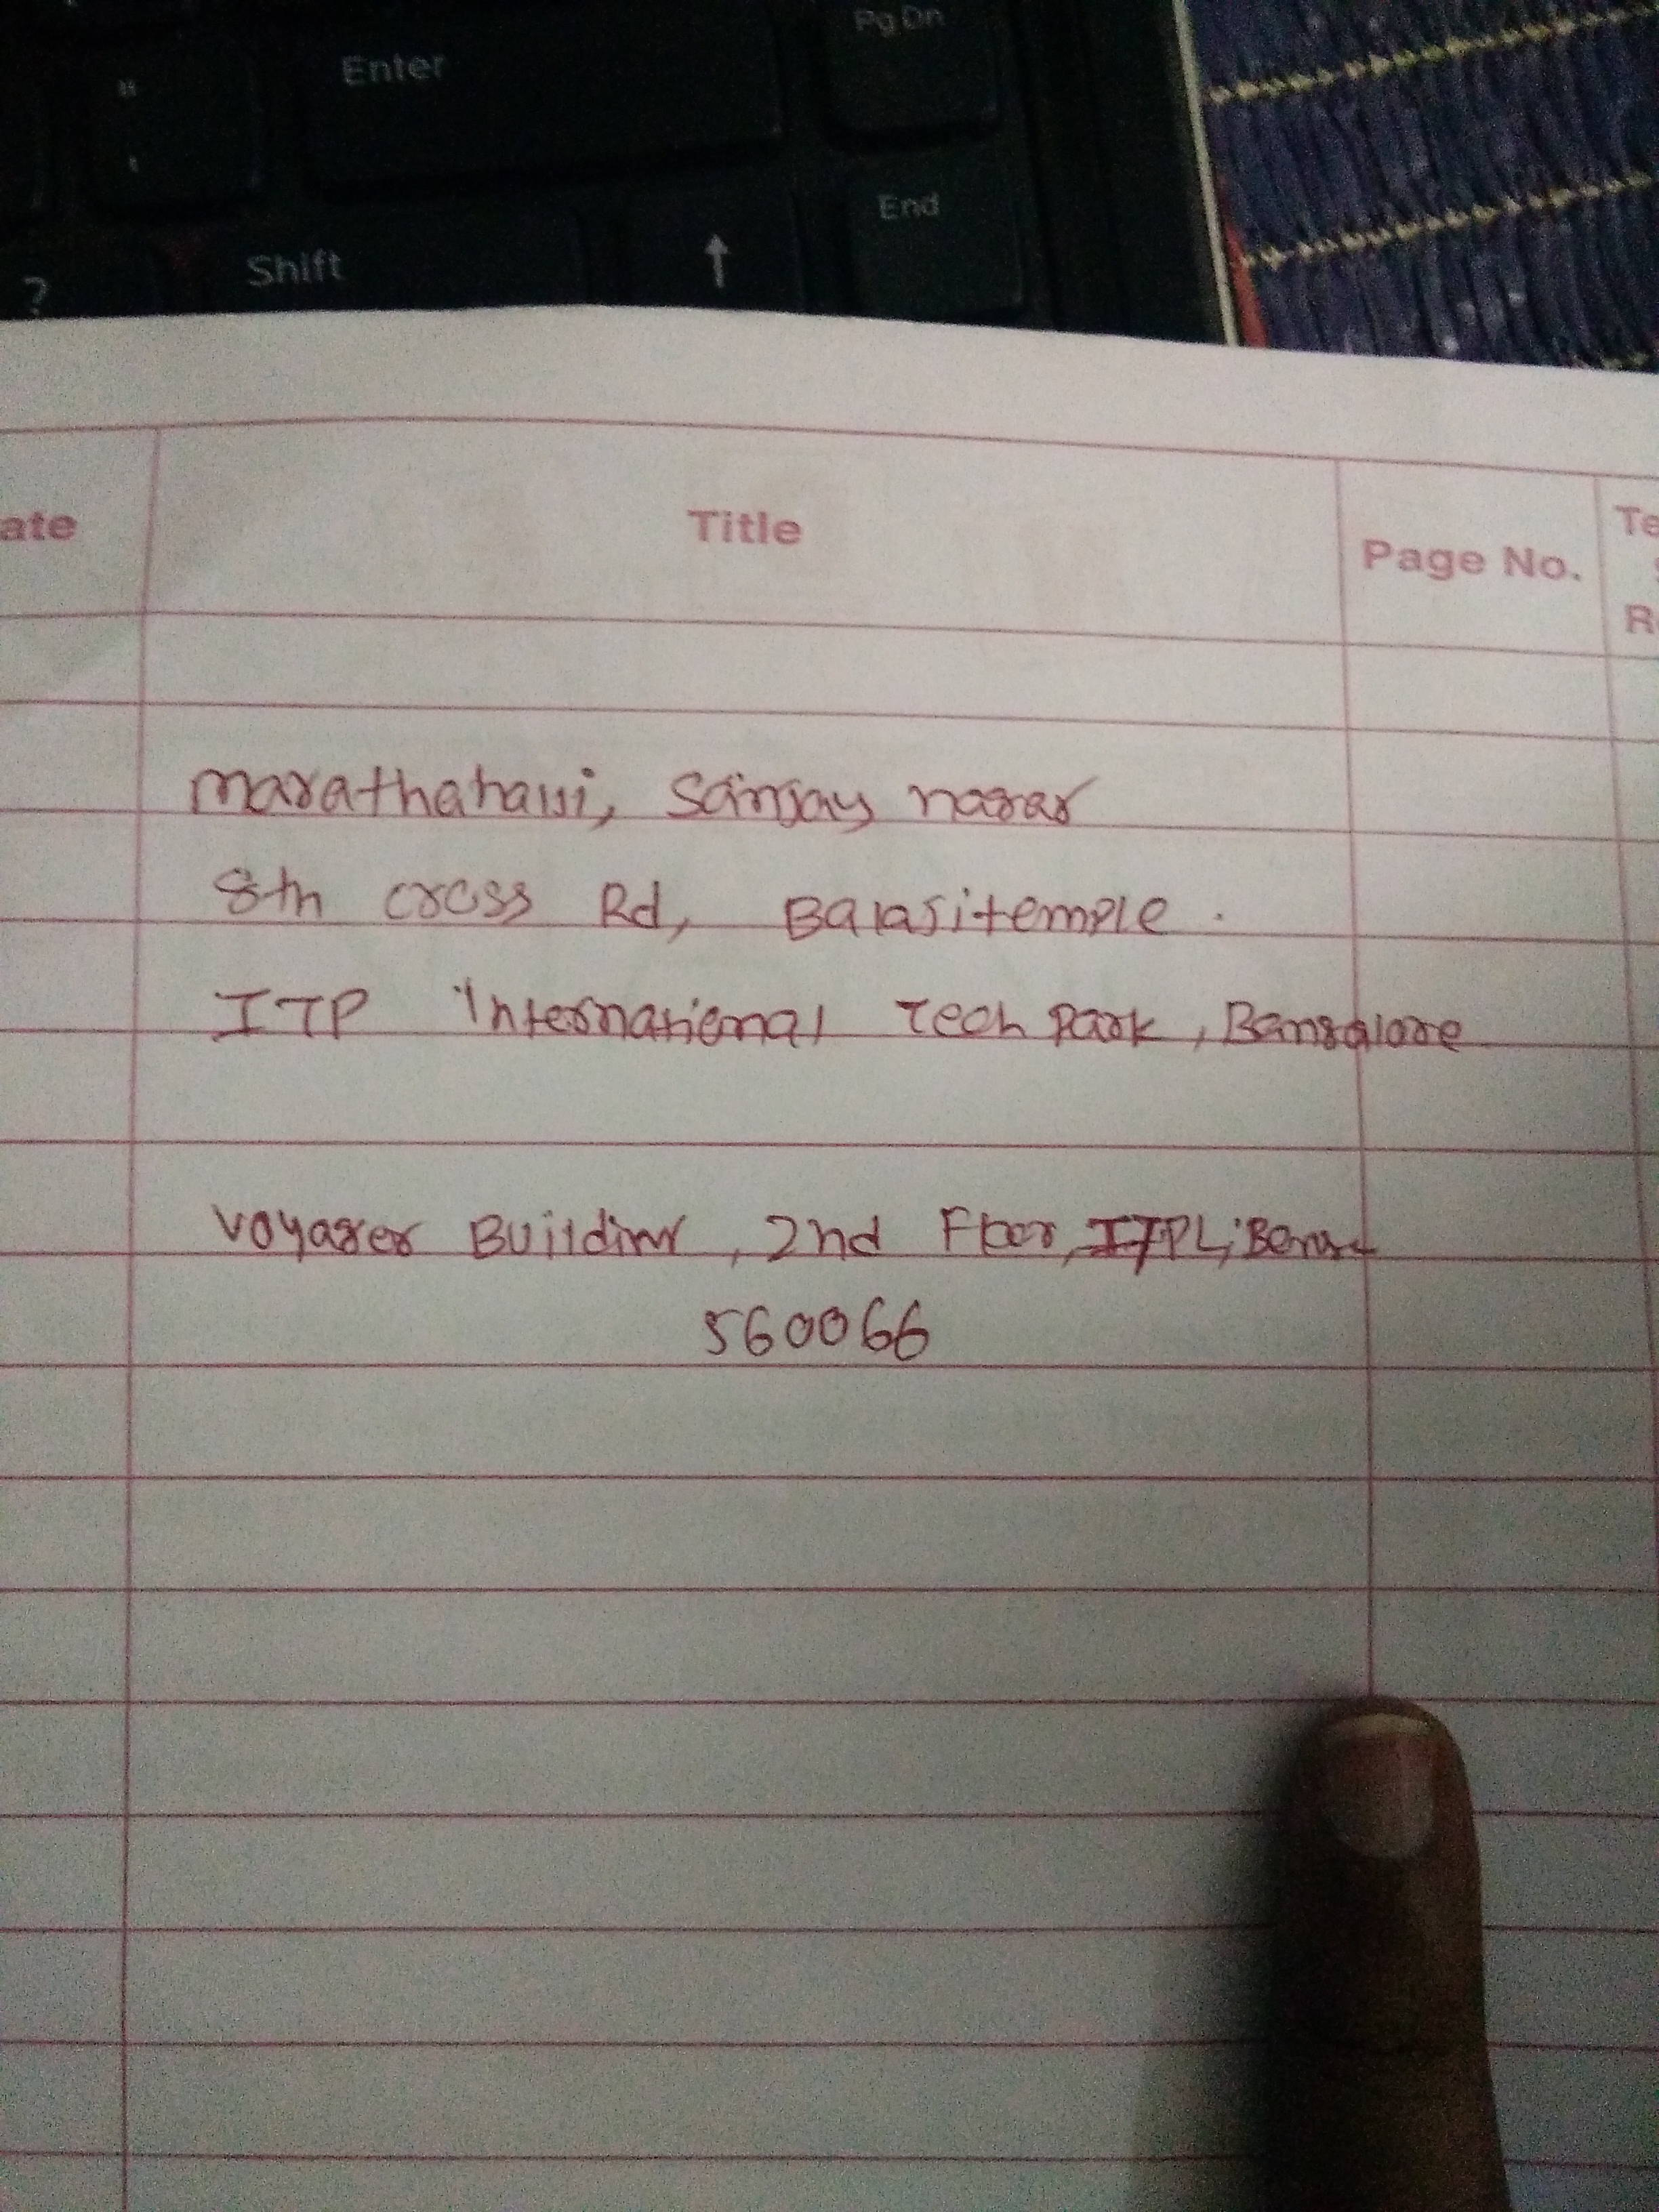 Pg Dn
Enter
"
'
End
Shift ↑
?
ate Title Page No. Te
R
Marathahalli, Sanjay nagar
8th cross Rd, Balajitemple.
ITP International Tech Park, Bangalore
Voyager Building, 2nd Floor, ITPL,
560066